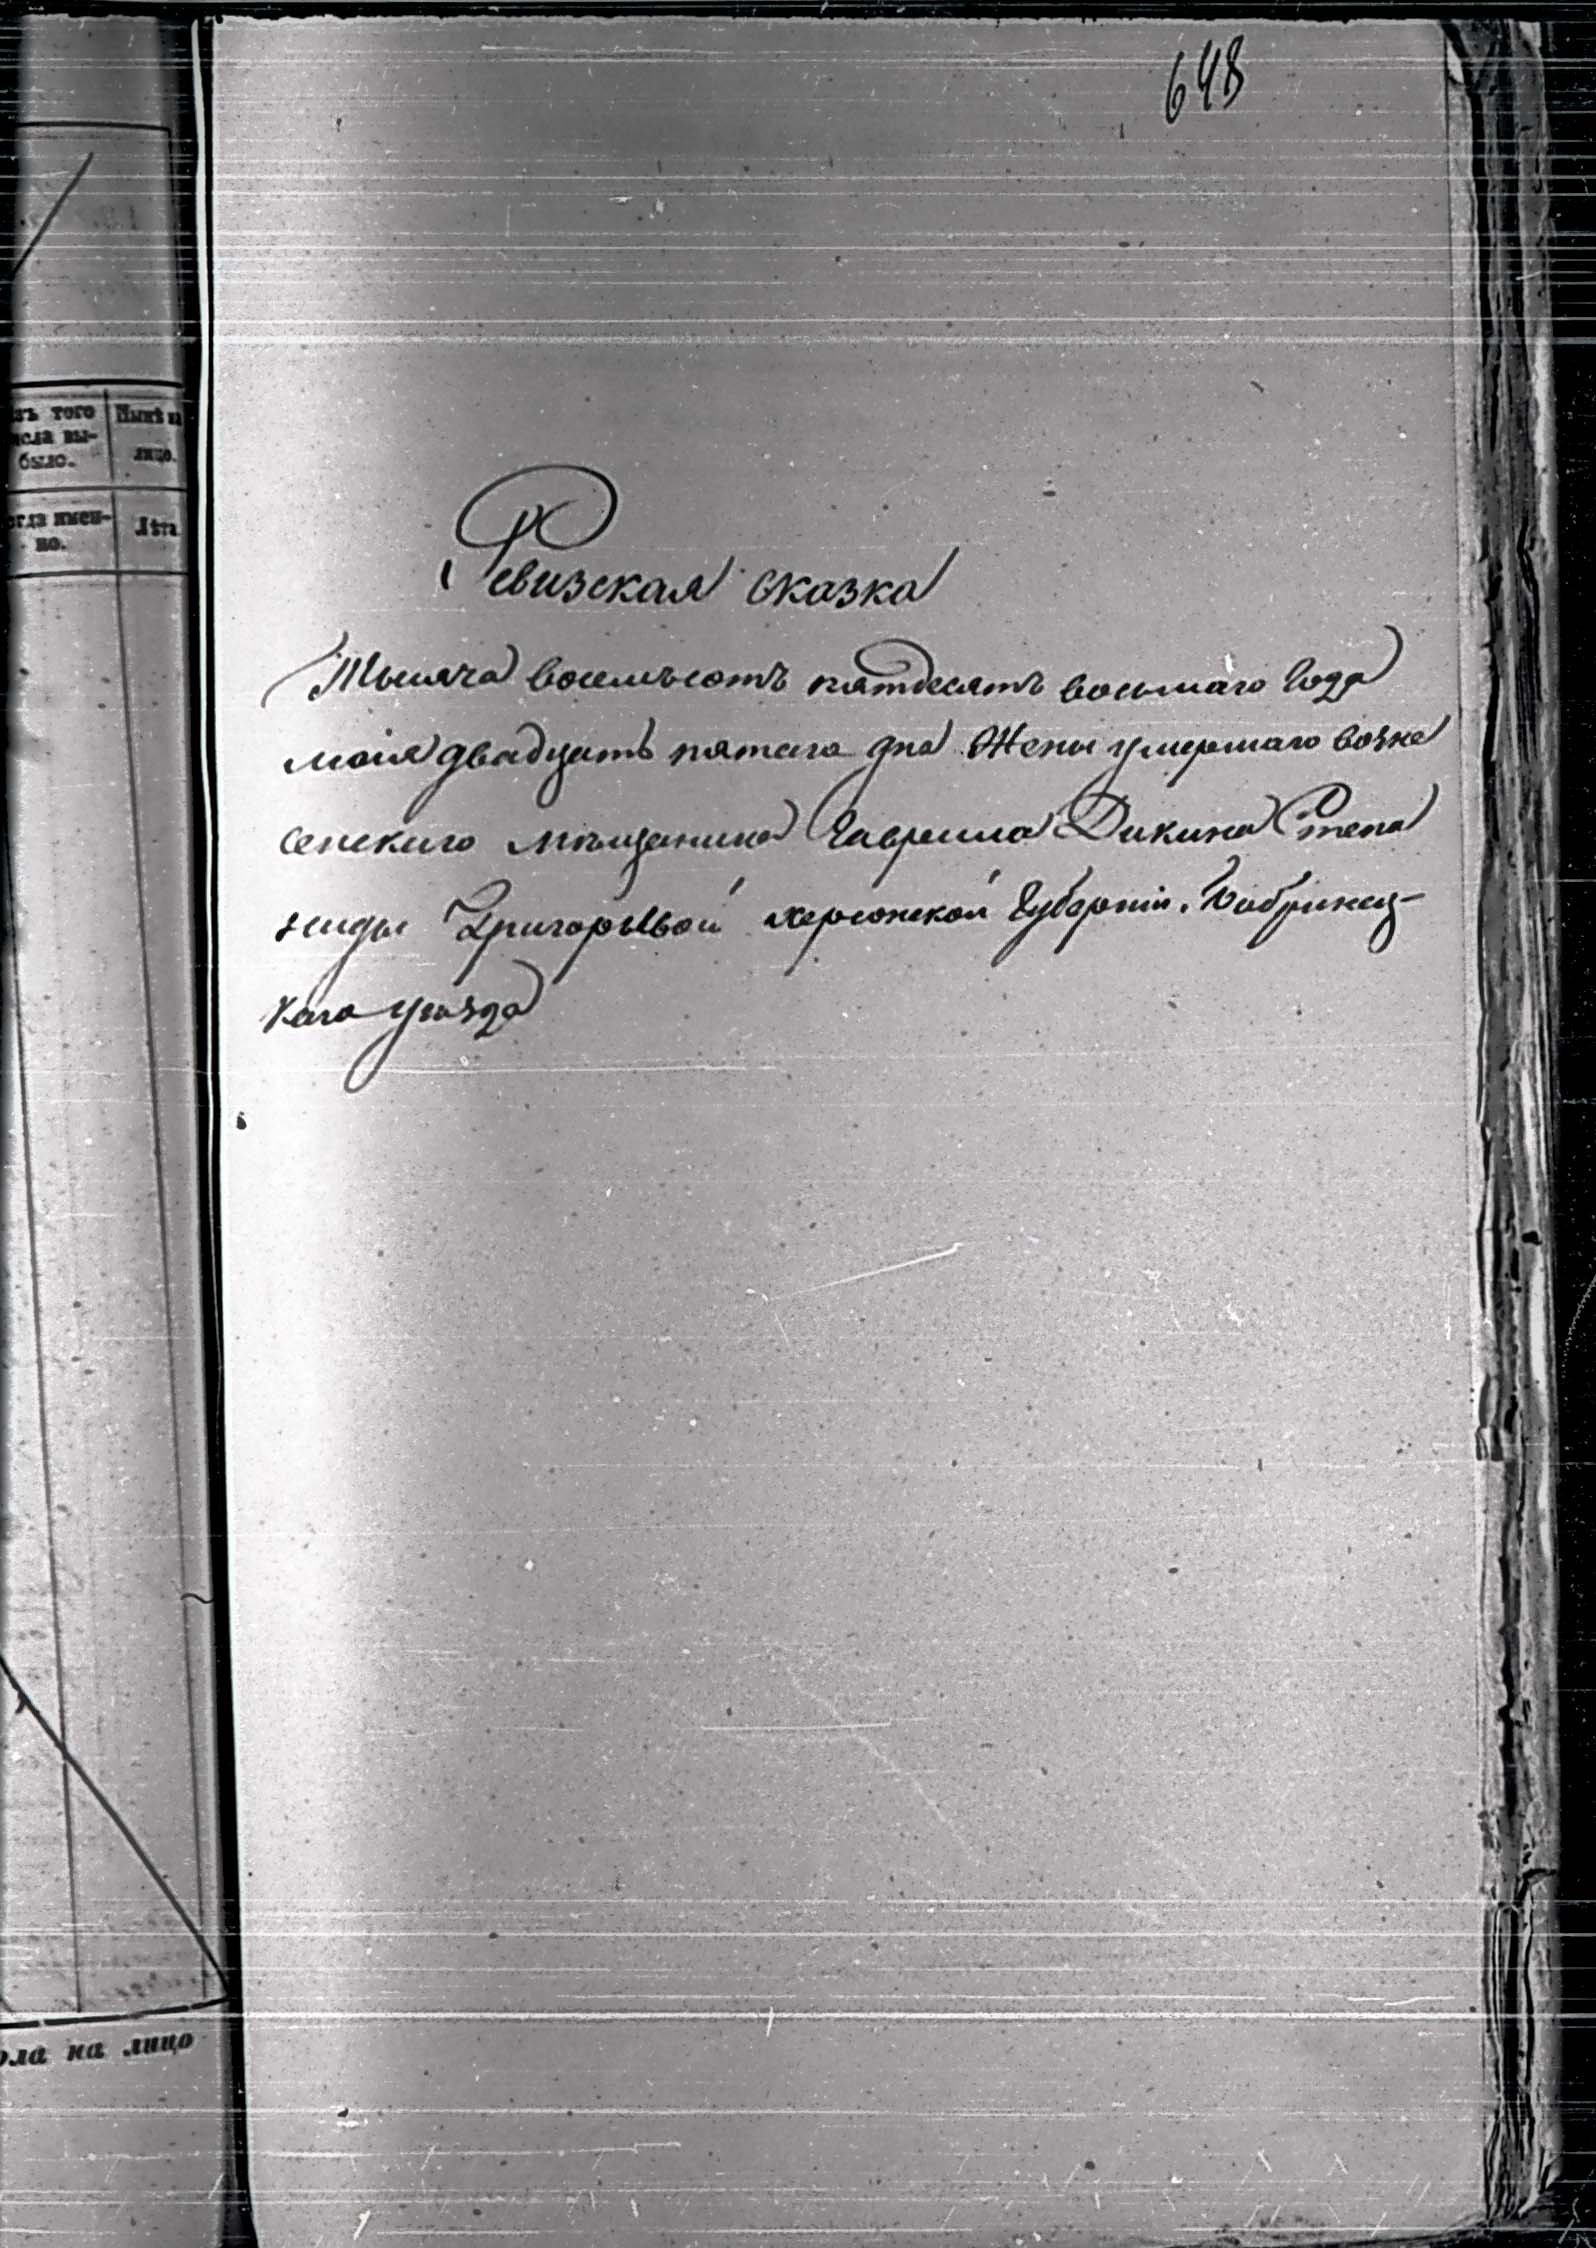 648
изъ того
числа вы-
было.
Нынѣ на
лицо.
когда имен-
но.
Лѣта
Ревизская сказка
Тысяча восемьсотъ пятдесятъ восьмаго года
маія двадцать пятаго дна Жены умершаго возне
сенскаго мѣщанина Гаврила Дикина Степа
ниды Григорьевой херсонской Губерніи. Бобринец-
каго уѣзда
на лицо